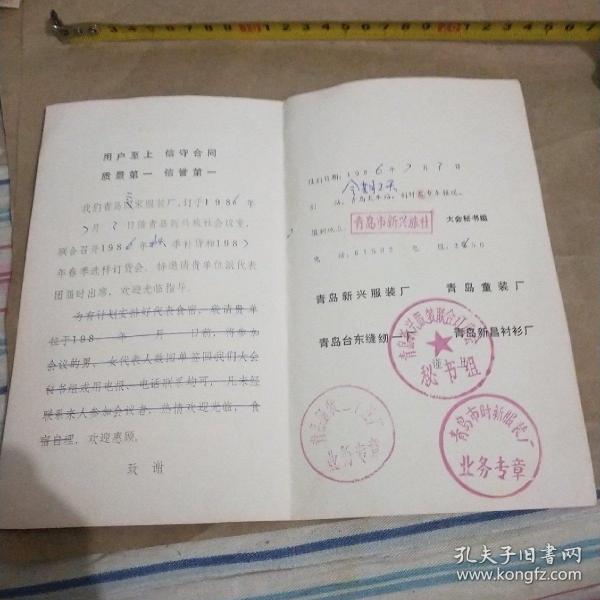 用户至上 信守合同
质量第一 信誉第一
我们青岛 家服装厂,订于1986年
7月3日借青岛新兴旅社会议室,
联合召开1986年秋冬季补货和1987
年春季选样订货会。特邀请贵单位派代表
团届时出席,欢迎光临指导。
为有计划安排好代表食宿,敬请贵单
位于198 年 月 日前,将参加
会议的男、女代表人数回单签回我们大会
秘书组或用电报、电话联系均可,凡未经
联系来人参加会议者,热情欢迎光临,食
宿自理,欢迎惠顾。
致谢
报到日期:1986年7月2日
会期2天
报到地点:
青岛市新兴旅社
大会秘书组
电 话:61502 电 挂:
青岛新兴服装厂 青岛童装厂
青岛台东缝纫 厂 青岛新昌衬衫厂
秘书组
业务专章
青岛市时新服装厂
业务专章
孔夫子旧书网
www.kongfz.com